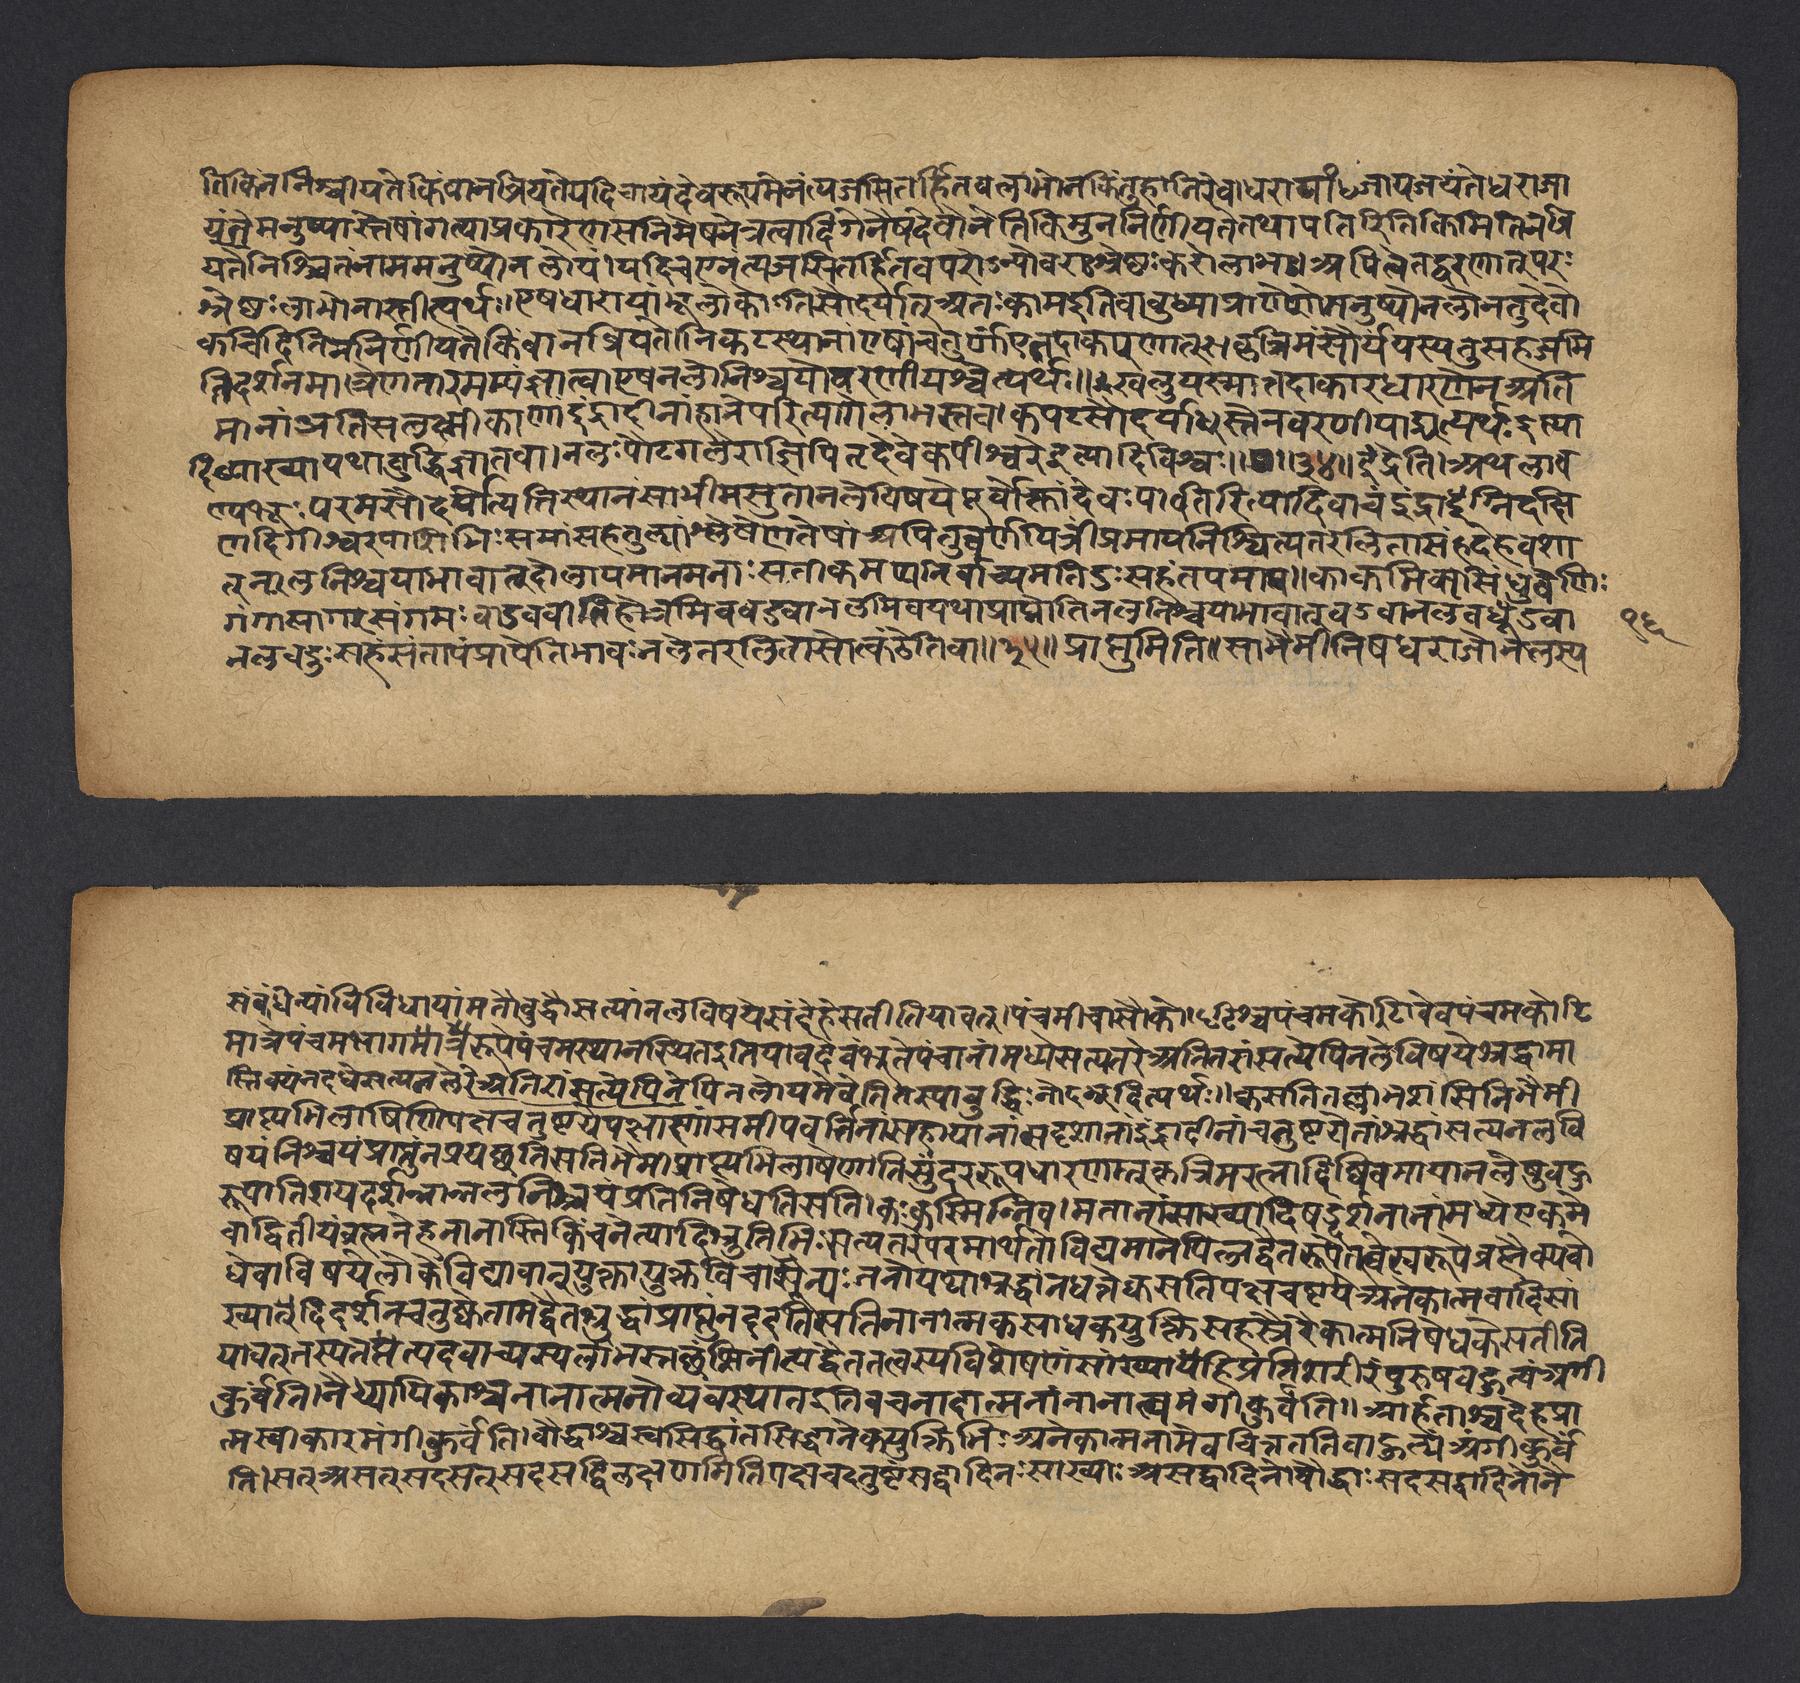 तिकिंननिश्चीयतेकिंवानव्रियतेयदिचायंदेवरूपमेनंत्यजसितर्हितवलाभोनकिंतुहानिरेव।धराजांधजापजयंतेधराजा
यंतेमनुष्यास्तेषांगत्याप्रकारेणसनिमेषनेत्रत्वादिगेनैषदेवोनेतिकिमुननिर्णीयतेतथापतिरितिकिमितिनव्रि
यतेनिश्चितंनाममनुष्योनलोयं।यदिचएनंत्यजसितर्हितवपरोऽन्योवराश्रेष्ठःकरोलाभः।अपित्वेतद्वरणात्परः
श्रेष्ठःलाभोनास्तीत्यर्थः॥एषधारायांभूलोकोऽतिसौंदर्यात्अतःकामइतिवाबुध्याप्राणेशोमनुष्योनलोनतुदेवो
कचिदितिननिर्णीयतेकिंवानव्रियते।निकटस्थानांएषांचतुर्णांएतदाकर्षणात्स।कृत्रिमंसौंदर्ययस्यतुसहजमि
तिदर्शनमात्रेणतारतम्यंज्ञात्वाएषनलोनिश्चयोवरणीयश्चेत्यर्थः॥खलुयस्मात्तदाकारधारणेनअति
मानांअतिसलक्ष्मीकाणांइंद्रादीनांहानेपरित्यागेलाभस्तव।कपटसौंदर्याधिस्तेनवरणीयाइत्यर्थःइत्या
दिव्याख्यायथाबुद्धिज्ञातव्या।नलःपोटगलेराज्ञिपितृदेवेकपीश्वरेइत्यादिविश्वः॥३४॥इंद्रेति।अथलाव
ण्यभूःपरमसौंदर्योत्पत्तिस्थानंसाभीमसुतानलविषयेपूर्वोक्तांदेवःपतिरित्यादिवाचंइंद्राग्निदक्षि
णदिगीश्वरपाशिभिःसमांसहतुल्यांश्लेषेणतेषांअपितुवर्णयित्रींप्रमाप्यनिश्चित्यतरलितासंदेहवशा
त्नलनिश्चयाभावात्दोलायमानमनाःसतीकमप्यनिर्वाच्यमतिदुःसहंतपमाप॥काकमिवसिंधुवेणिः
गंगासागरसंगमःवाडववीतिहोत्रमिवबडवानलमिवयथाप्राप्नोतिनलनिश्चयाभावात्बडवानलवधूंइवा
नलवद्दुःसहंसंतापंप्रापेतिभावःनलेतरलितासोत्कंठेतिवा॥३५॥प्राप्तुमिति॥साभैमीनिषधराजोनलस्य
१६
संबंधिन्यांविविधायांमतौबुद्धौसत्यांनलविषयेसंदेहेसतीतियावत्।पंचमीचासौको।टिश्चपंचमकोटिःवेवपंचमकोटि
मात्रेपंचमभागमात्रेरूपेपंचमस्थानस्थितइतियावदेवंभूतेपंचानांमध्येसत्यतरेअतितरांसत्येपिनलेविषयेश्रद्धामा
स्तिक्यंनदधेसत्यनलेरेअतितरांसत्येपिनेपिनलोयमेवेतितस्याबुद्धिःनोदभूदित्यर्थः॥क्वसतितल्लाभशंसिनिभैमी
प्राप्त्यभिलाषिणिपक्षचतुष्टयेपक्षाणांसमीपवर्तिनांसहायानांसदृशानांइंद्रादीनांचतुष्टयेतांश्रद्धांसत्यनलवि
षयंनिश्चयंप्राप्तुंनप्रयच्छतिसतिभैमीप्राप्त्यभिलाषेणातिसुंदररूपधारणात्कृत्रिमरत्नादिष्विवमायानलेषुबहु
रूपातिशयदर्शनान्नलनिश्चयंप्रतिनिषेधतिसति।कःकस्मिन्निव।मतानांसांख्यादिषड्दर्शनानांमध्येएकमे
वाद्वितीयंब्रह्मनेहनानास्तिकिंचनेत्यादिश्रुतिभिःसत्यतरेपरमार्थतोविद्यमानेपिअद्वैतरूपेतत्त्वेस्वरूपेब्रह्मैक्येवा
धेवाविषयेलोकोविद्यावान्युक्तायुक्तविचारशून्यःजनोयथाश्रद्धांनधत्तेक्वसतिपक्षचतुष्टयेअनेकात्मवादिसां
ख्यादिदर्शनचतुष्केतामद्वैतश्रद्धांप्राप्तुंनददतिसतिनानात्मकसाधकयुक्तिसहस्रैरेकात्मनिषेधकेसतीति
यावत्तस्यतत्पदवाच्यस्यलाभस्तच्छंसिनीत्यद्वैततत्त्वस्यविशेषणंसांख्यायेहिप्रतिशरीरंपुरुषबहुत्वंअंगी
कुर्वंति।नैय्यायिकाश्चनानात्मनोव्यवस्थातइतिवचनादात्मनांनानात्वमंगीकुर्वंति॥आर्हताश्चदेहप्रा
त्मस्वीकारमंगीकुर्वंति।बौद्धाश्चस्वसिद्धांतसिद्धानेकयुक्तिभिःअनेकात्मनामेवचित्तततिबाहुल्यंअंगीकुर्वं
ति।सत्असत्सदसत्सदसद्विलक्षणमितिपक्षचतुष्टंसद्वादिनःसांख्याःअसद्वादिनोबौद्धाःसदसद्वादिनोनै